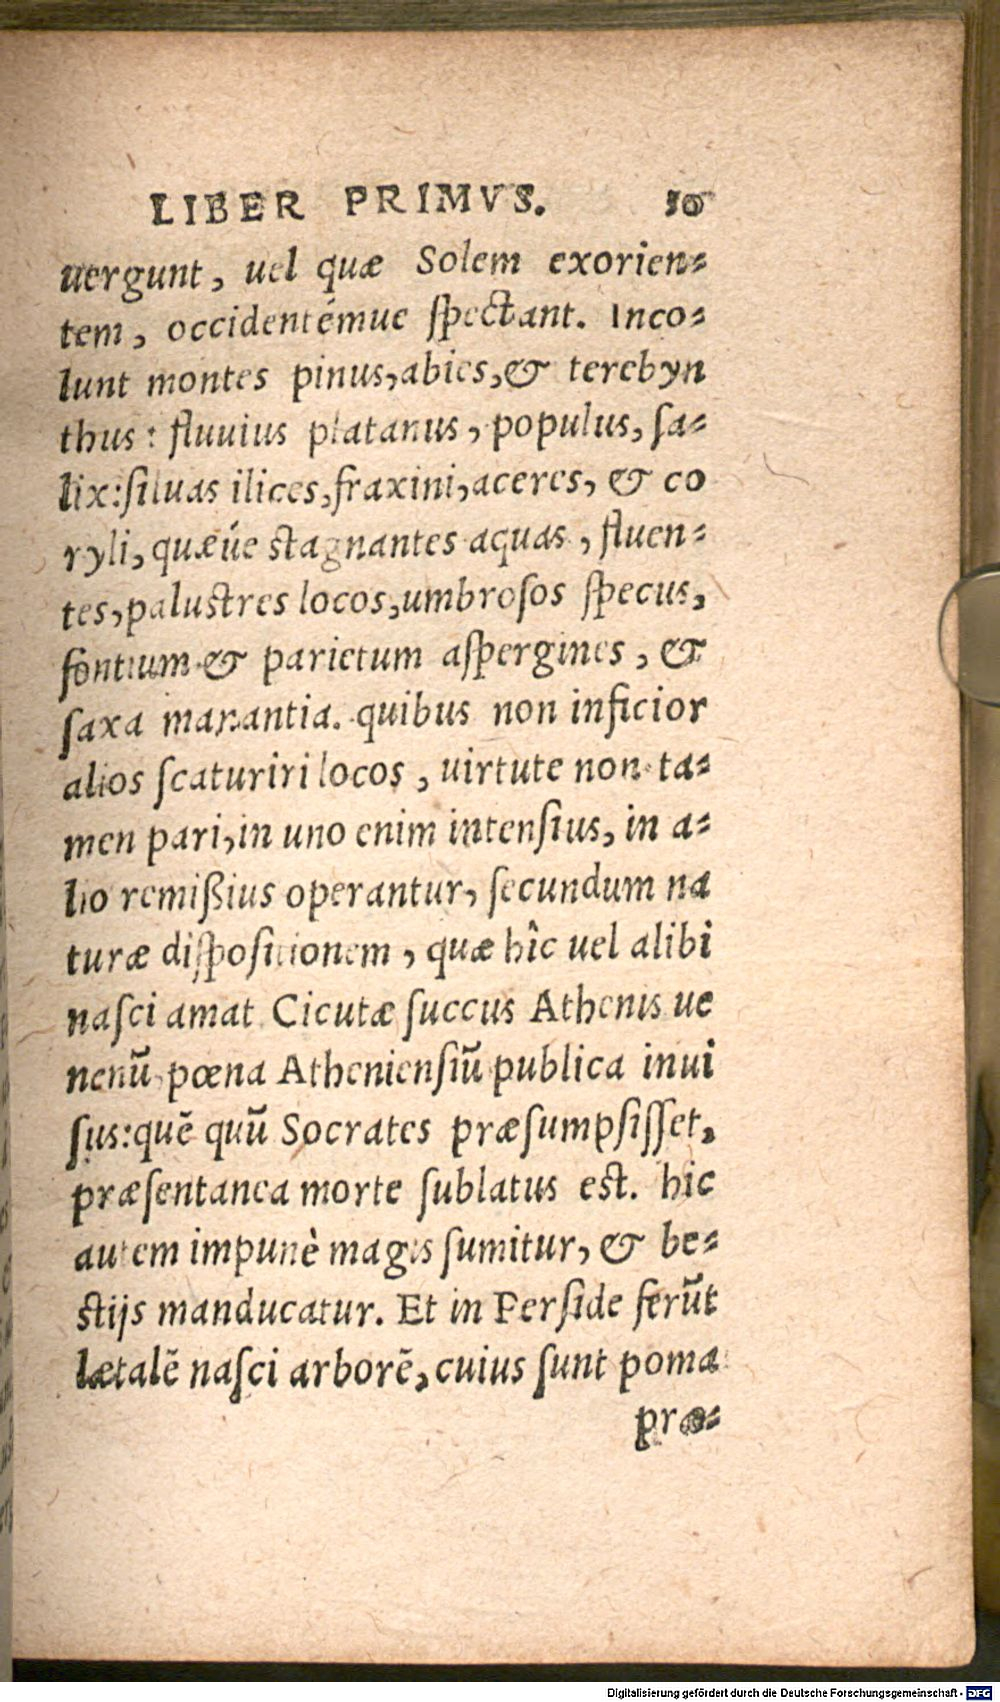 LIBER PRIMVS. 10
uergunt, uel quæ Solem exorien-
tem, occidentémue ſpectant. Inco-
lunt montes pinus, abies, & terebyn
thus: fluuius platanus, populus, ſa-
lix: ſiluas ilices, fraxini, aceres, & co
ryli, quæúe ſtagnantes aquas, fluen-
tes, paluſtres locos, umbroſos ſpecus,
fontium & parietum aſpergines, &
ſaxa manantia. quibus non inficior
alios ſcaturiri locos, uirtute non ta-
men pari, in uno enim intenſius, in a-
lio remißius operantur, ſecundum na
turæ diſpoſitionem, quæ hîc uel alibi
naſci amat. Cicutæ ſuccus Athenis ue
nenũ, pœna Athenienſiũ publica inui
ſus: quẽ quũ Socrates præſumpſiſſet,
præſentanea morte ſublatus eſt. hic
autem impunè magis ſumitur, & be-
ſtijs manducatur. Et in Perſide ferũt
lætalẽ naſci arborẽ, cuius ſunt poma
præ-
Digitalisierung gefördert durch die Deutsche Forschungsgemeinschaft - DFG